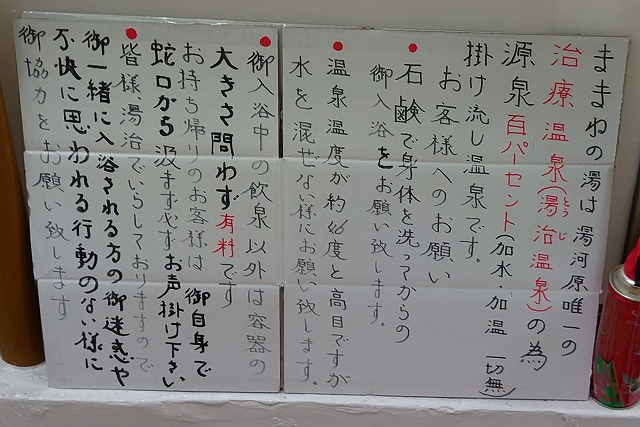 ままねの湯は湯河原唯一の
治療温泉(湯治温泉)の為
とうじ
源泉百パーセント(加水・加温 一切無)
掛け流し温泉です。
お客様へのお願い
石鹸で身体を洗ってからの
御入浴をお願い致します。
温泉温度が約46度と高目ですが
水を混ぜない様にお願い致します。
御入浴中の飲泉以外は容器の
大きさ問わず有料です
お持ち帰りのお客様は 御自身で
蛇口から汲まず必ずお声掛け下さい
皆様、湯治でいらしておりますので
御一緒に入浴される方の御迷惑や
不快に思われる行動のない様に
御協力をお願い致します